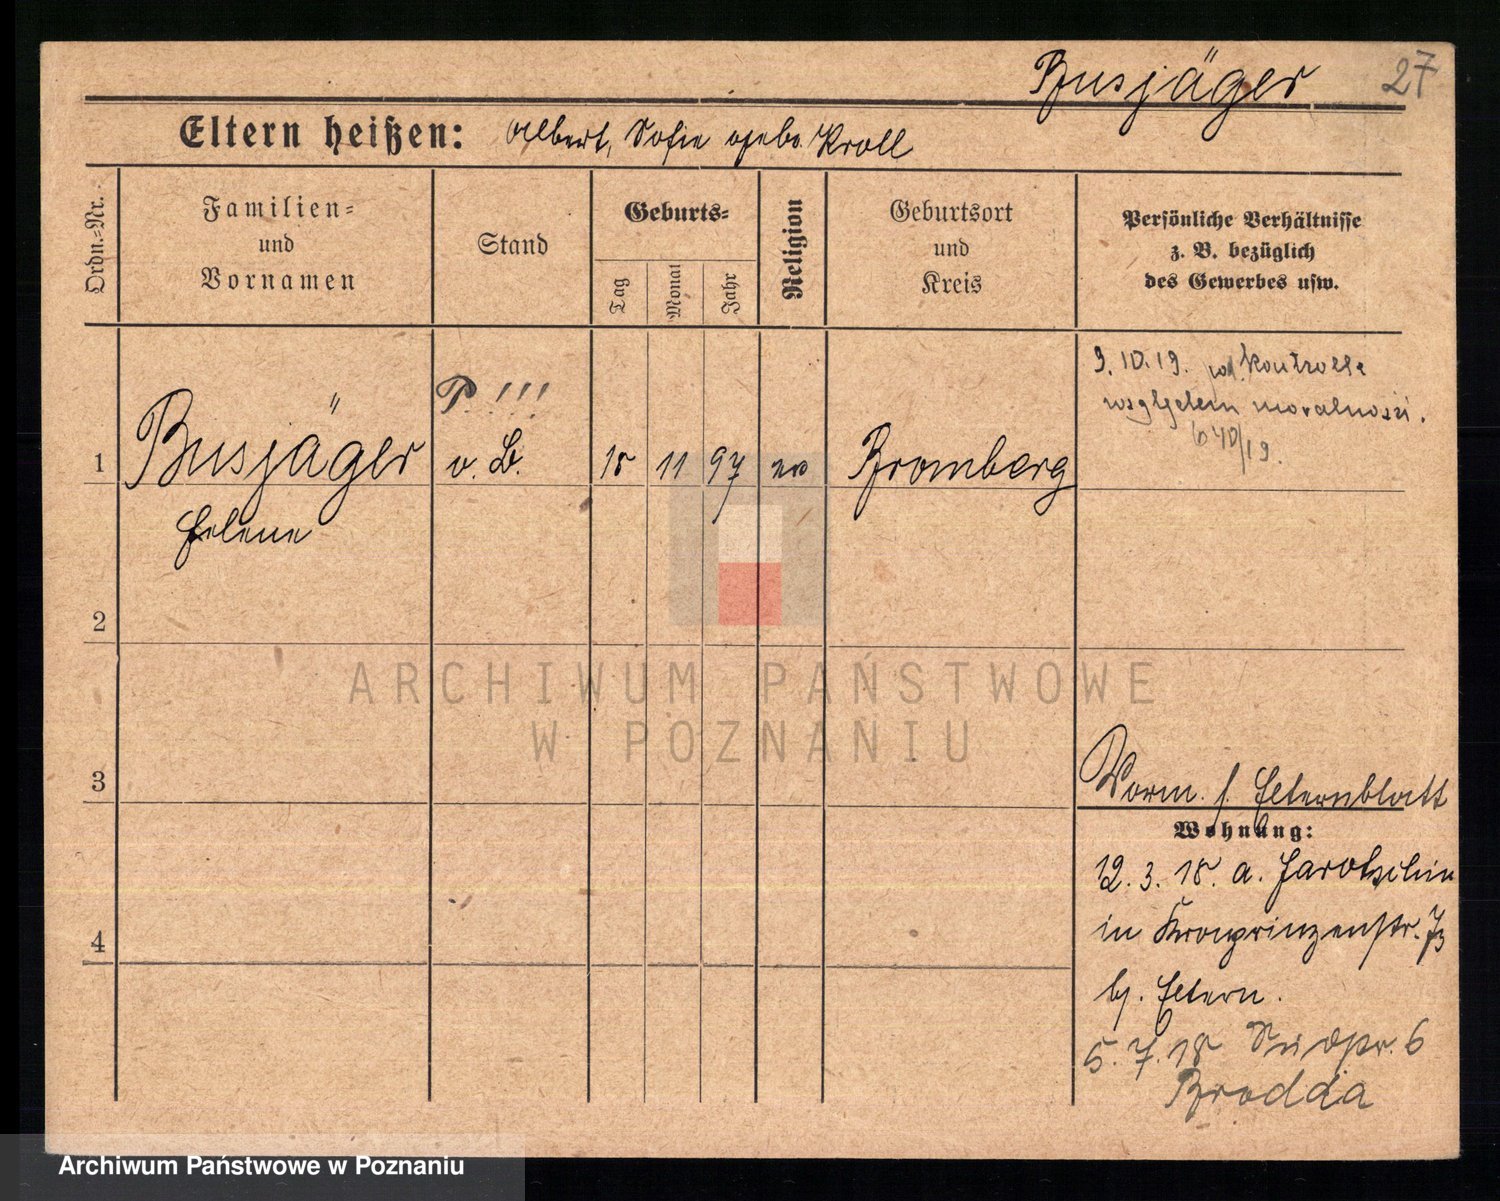 Busjäger 27
Eltern heißen: Albert, Sofie geb. Kroll
Ordn.-Nr.
Familien-
und
Vornamen
Stand
Geburts-
Tag
Monat
Jahr
Religion
Geburtsort
und
Kreis
Persönliche Verhältnisse
z. B. bezüglich
des Gewerbes usw.
9.10.19. pod kontrolle
względem moralności.
640/19.
P. !!!
1 Busjäger o. B. 18 11 97 ev Bromberg
Helene
2
3
4
ARCHIWUM PAŃSTWOWE
W POZNANIU
Vorm. s. Elternblatt
Wohnung:
12.3.18. a. Jarotschin
in Kronprinzenstr.
b. Eltern.
5.7.18 6
Brodda
Archiwum Państwowe w Poznaniu